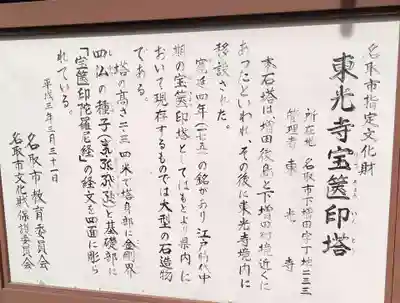 名取市指定文化財
東光寺宝篋印塔
とうこうじほうきょういんとう
所在地 名取市下増田字丁地二三三
管理者 東光寺
本石塔は増田後島と下増田村境近くに
あったといわれ、その後に東光寺境内に
移設された。
寛延四年(一七五一)の銘があり江戸時代中
期の宝篋印塔としてはもとより県内に
おいて現存するものでは大型の石造物
である。
塔の高さ二・三四米で塔身部に金剛界
四仏の種子と基礎部に
「宝篋印陀羅尼経」の経文を四面に彫ら
れている。
平成三年三月三十一日
名取市教育委員会
名取市文化財保護委員会